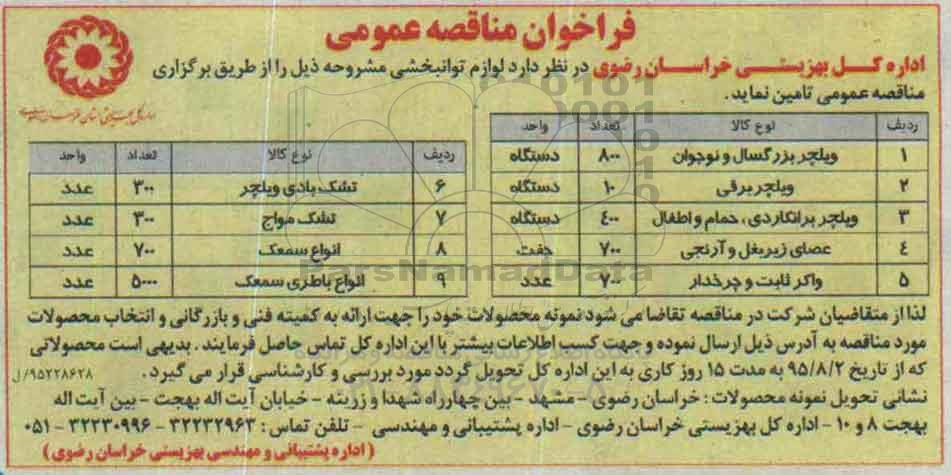 فراخوان مناقصه عمومی
اداره کل بهزیستی خراسان رضوی در نظر دارد لوازم توانبخشی مشروحه ذیل را از طریق برگزاری
مناقصه عمومی تامین نماید.
ردیف نوع کالا تعداد واحد
۱ ویلچر بزرگسال و نوجوان ۸۰۰ دستگاه
۲ ویلچر برقی ۱۰ دستگاه
۳ ویلچر برانکاردی، حمام و اطفال ۴۰۰ دستگاه
۴ عصای زیربغل و آرنجی ۷۰۰ جفت
۵ واکر ثابت و چرخدار ۷۰۰ عدد
ردیف نوع کالا تعداد واحد
۶ تشک بادی ویلچر ۳۰۰ عدد
۷ تشک مواج ۳۰۰ عدد
۸ انواع سمعک ۷۰۰ عدد
۹ انواع باطری سمعک ۵۰۰۰ عدد
ParsNamadData
لذا از متقاضیان شرکت در مناقصه تقاضا می شود نمونه محصولات خود را جهت ارائه به کمیته فنی و بازرگانی و انتخاب محصولات
مورد مناقصه به آدرس ذیل ارسال نموده و جهت کسب اطلاعات بیشتر با این اداره کل تماس حاصل فرمایند. بدیهی است محصولاتی
که از تاریخ ۹۵/۸/۲ به مدت ۱۵ روز کاری به این اداره کل تحویل گردد مورد بررسی و کارشناسی قرار می گیرد.
۹۵۲۲۸۶۲۸/ل
نشانی تحویل نمونه محصولات: خراسان رضوی - مشهد - بین چهارراه شهدا و زرینه - خیابان آیت اله بهجت - بین آیت اله
بهجت ۸ و ۱۰ - اداره کل بهزیستی خراسان رضوی - اداره پشتیبانی و مهندسی - تلفن تماس: ۳۲۲۳۲۹۶۳ - ۳۲۲۳۰۹۹۶ - ۰۵۱
(اداره پشتیبانی و مهندسی بهزیستی خراسان رضوی)